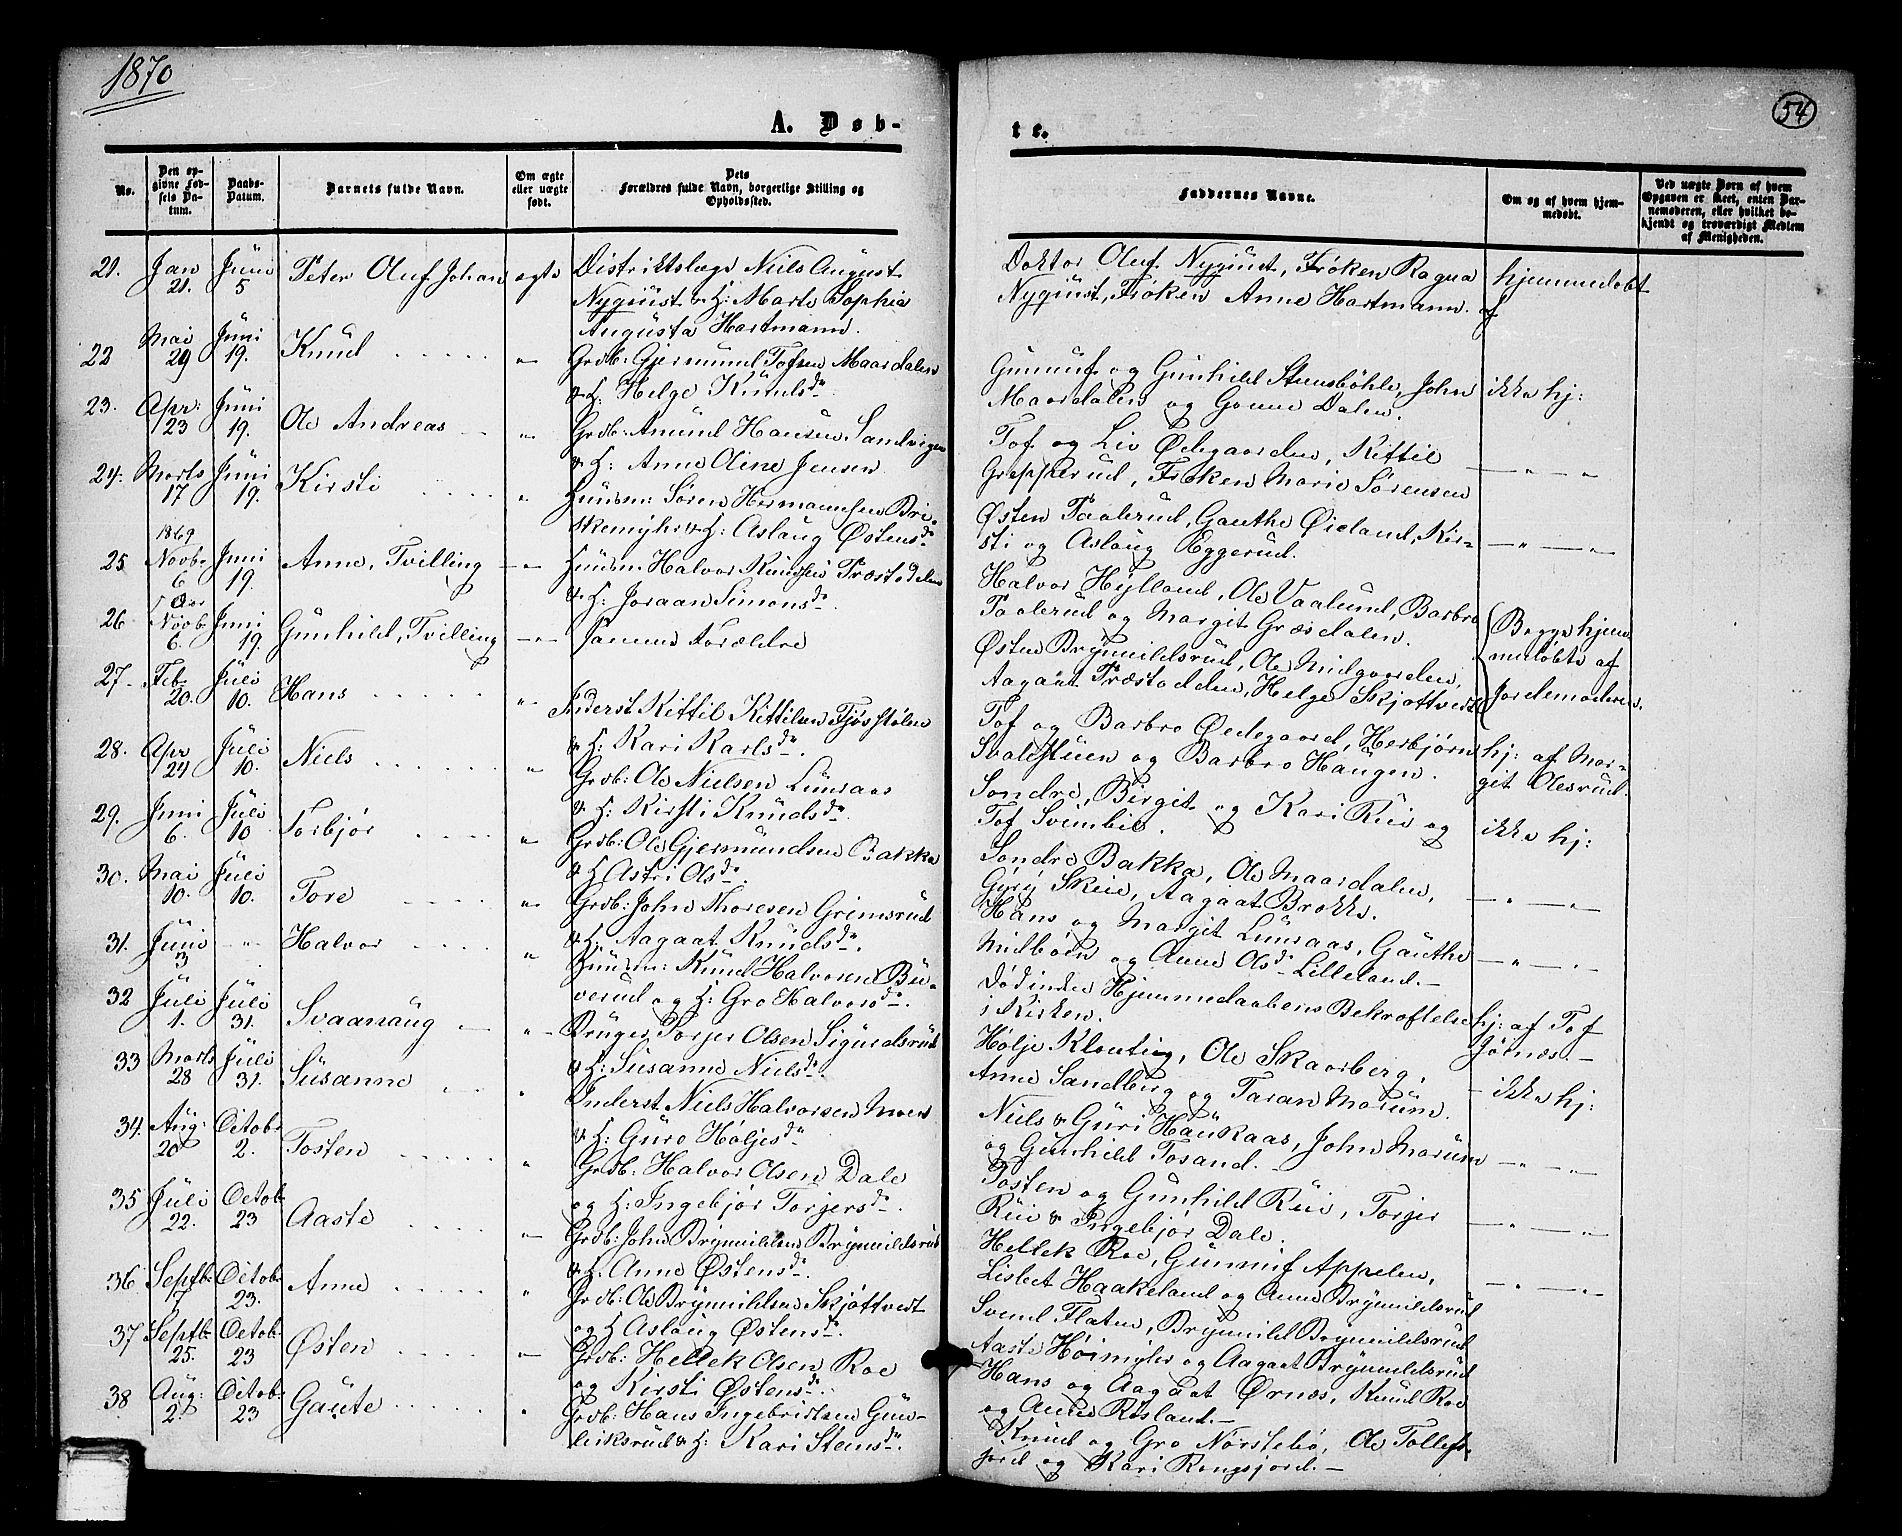 1870
54
A. Døb-
te.
No.
Den op-
givne Fød-
sels Da-
tum.
Daabs-
Datum.
Barnets fulde Navn.
Om ægte
eller uægte
født.
Dets
Forældres fulde Navn, borgerlige Stilling og
Opholdssted.
Faddernes Navne.
Om og af hvem hjem-
medøbt.
Ved uægte Børn af hvem
Opgaven er skeet, enten Bar-
nemoderen, eller hvilket be-
kjendt og troværdigt Medlem
af Menigheden.
21. Jan 21. Juni 5 Peter Oluf Johan ægte Distriktslæge Niels August
Nyquist & H: Marte Sophia
Augusta Hartmann.
Doktor Oluf Nyquist, Frøken Ragna
Nyquist, Frøken Anne Hartmann.
hjemmedøbt
af
22 Mai 29 Juni 19. Knud " Grdb: Gjermund Tofsen Maardalen
& H: Helge Knudsdr
Gunnuf og Gunhild Steensbøhle, John
Maardalen og Gonne Dalen.
ikke hj:
23. Apr: 23 Juni 19. Ole Andreas " Grdb: Amund Hansen Sandvigen
& H: Anne Oline Jensen
Tof og Liv Ødegaarden, Kittil
Grepperud, Frøken Marie Sørensen
— " — "
24. Marts 17 Juni 19. Kirsti " Huusm: Søren Hermannsen Bri-
skemyhr & H: Aslaug Østensdr
Østen Paalerud, Gauthe Øieland, Kir-
sti og Aslaug Eggerud.
— " — "
25 1869 Novbr 6 Juni 19. Anne, Tvilling — " — Huusm Halvor Knudsen Træstødelen
& H: Joraan Simonsdr
Halvor Hylland, Ole Vaalund, Barbro
Paalerud og Margit Græsdalen.
Begge hjem
medøbte af
Jordemoderen.
26 f Aar Novb. 6. Juni 19. Gunhild, Tvilling — " — Samme Forældre
Østen Brynnildsrud, Ole Midgaarden,
Aagaat Træstødden, Helge Skjøttvedt
27. Feb. 20. Juli 10. Hans " Inderst Kittil Kittilsen Fjøsstølen
& H: Kari Karlsdr.
Tof og Barbro Ødegaard, Herbjørn
Svalestuen og Barbro Haugen.
hj: af Mar-
git Olesrud.
28. Apr 24 Juli 10. Niels " Grdb: Ole Nielsen Lunaas
& H: Kirsti Knudsdr.
Sondre, Birgit og Kari Rui og
Tof Svinebie.
ikke hj:
29. Juni 6. Juli 10 Torbjør " Grdb: Ole Gjermundsen Bakka
& H Astri Olsdr
Sondre Bakka, Ole Maardalen,
Gyry Skeie, Aagaat Brokke.
— " — "
30. Mai 10. Juli 10. Tore " Grdb: John Thoresen Grimsrud
& H: Aagaat Knudsdr.
Hans og Margit Lunaas, Gauthe
Midbøen og Anne Olsdr Lilleland. —
— " — "
31. Juni 3 — " — Halvor " Huusm: Knud Halvorsen Bu-
verud og H: Gro Halvorsdr.
Død inden Hjemmedaabens Bekræftelse
i Kirken.
hj: af Tof
Jørnæs. —
32 Juli 1. Juli 31. Svaanaug — " — Bruger Torjer Olsen Sigurdsrud
& H: Susanne Nielsdr.
Hølje Klonteig, Ole Skaarberg,
Anne Sandberg og Taran Marum.
— ikke hj:
33 Marts 28 Juli 31. Susanne " Inderst Niels Halvorsen Moen
& H: Guro Høljesdr
Niels & Guri Haukaas, John Marum
og Gunhild Tosand. —
— " — "
34. Aug: 20 Octobr 2. Tosten " Grdb. Halvor Olsen Dale
og H: Ingebjør Torjersdr.
Tosten og Gunhild Rui, Torjer
Rui & Ingebjør Dale.
— " — "
35 Juli 22. Octob: 23 Aaste " Grdb: John Brynnildsen Brynnildsrud
& H. Anne Østensdr.
Hellek Roe, Gunnuf Appelen,
Lisbet Haakeland og Anne Brynnildsrud
— " — "
36 Septb. 7 Octob: 23. Anne " Grdb: Ole Brynnildsen Skjøttvedt
og H Aslaug Østensdr.
Svend Flaten, Brynnild Brynnildsrud
Aaste Høimyhr og Aagaat Brynnildsrud
37 Septb. 25. Octob: 23 Østen " Grdb: Hellek Olsen Roe
og Kirsti Østensdr.
Hans og Aagaat Ørnæs, Knud Roe
og Anne Røsland. —
38 Aug: 2. Octob: 23 Gaute " Grdb: Hans Ingebrigtsen Gun-
leiksrud & H: Kari Steinsdr.
Knud og Gro Nørstebø, Ole Tollefs-
jord og Kari Rongsjord. —